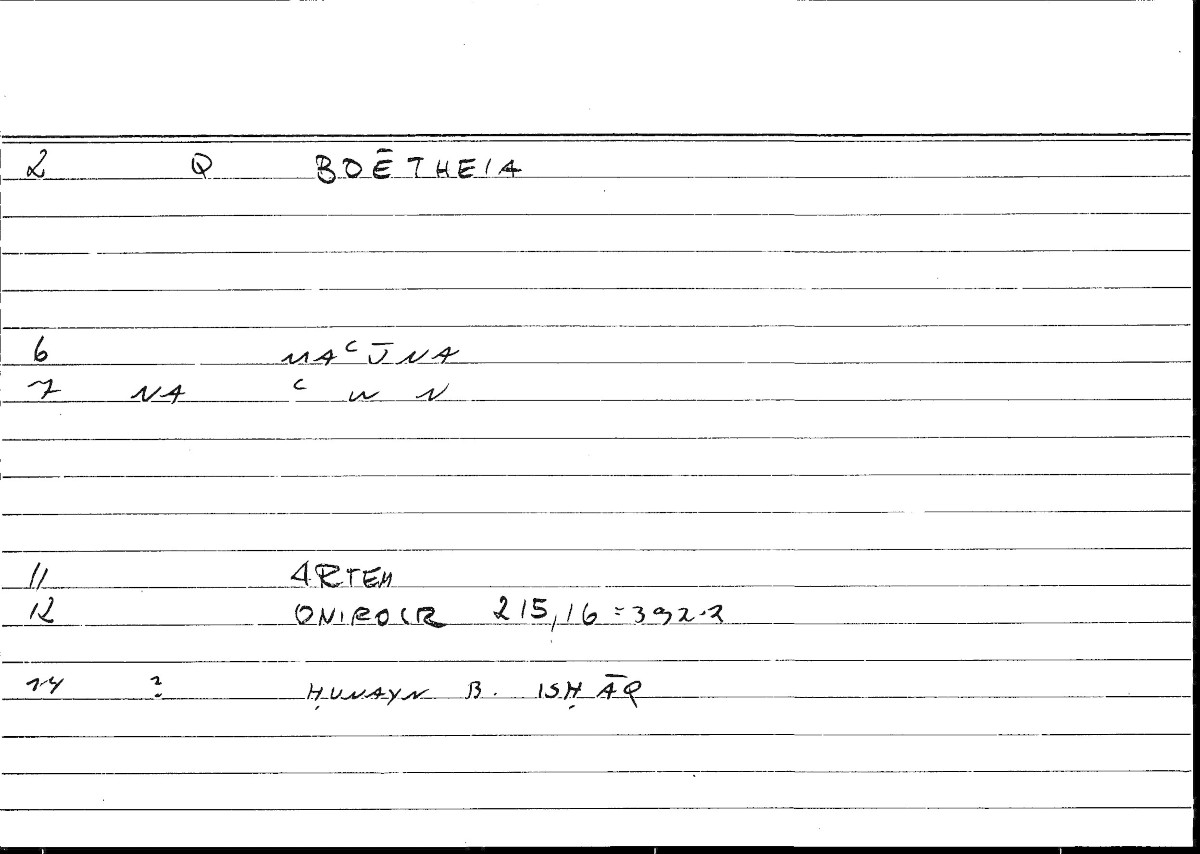 2 Q BOĒTHEIA
6 MAᶜŪNA
7 NA ᶜ W N
11 ARTEM
12 ONIROCR 215,16 = 392.2
14 ? ḤUNAYN B. ISḤĀQ